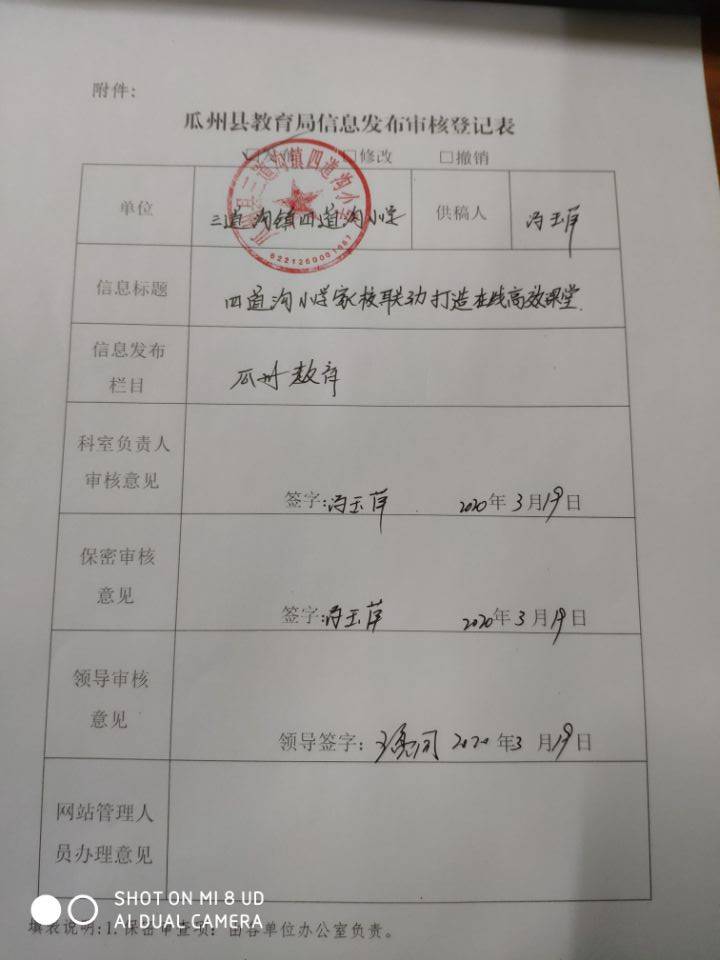 附件：
瓜州县教育局信息发布审核登记表
□修改 □撤销
单位 三道沟镇四道沟小学 供稿人 冯玉萍
6221260001967
信息标题 四道沟小学家校联动打造在线高效课堂
信息发布
栏目
瓜州教育
科室负责人
审核意见
签字：冯玉萍 2020年3月19日
保密审核
意见
签字：冯玉萍 2020年3月19日
领导审核
意见
领导签字： 2020年3月19日
网站管理人
员办理意见
SHOT ON MI 8 UD
AI DUAL CAMERA
填表说明:1.保密审查项：由各单位办公室负责。